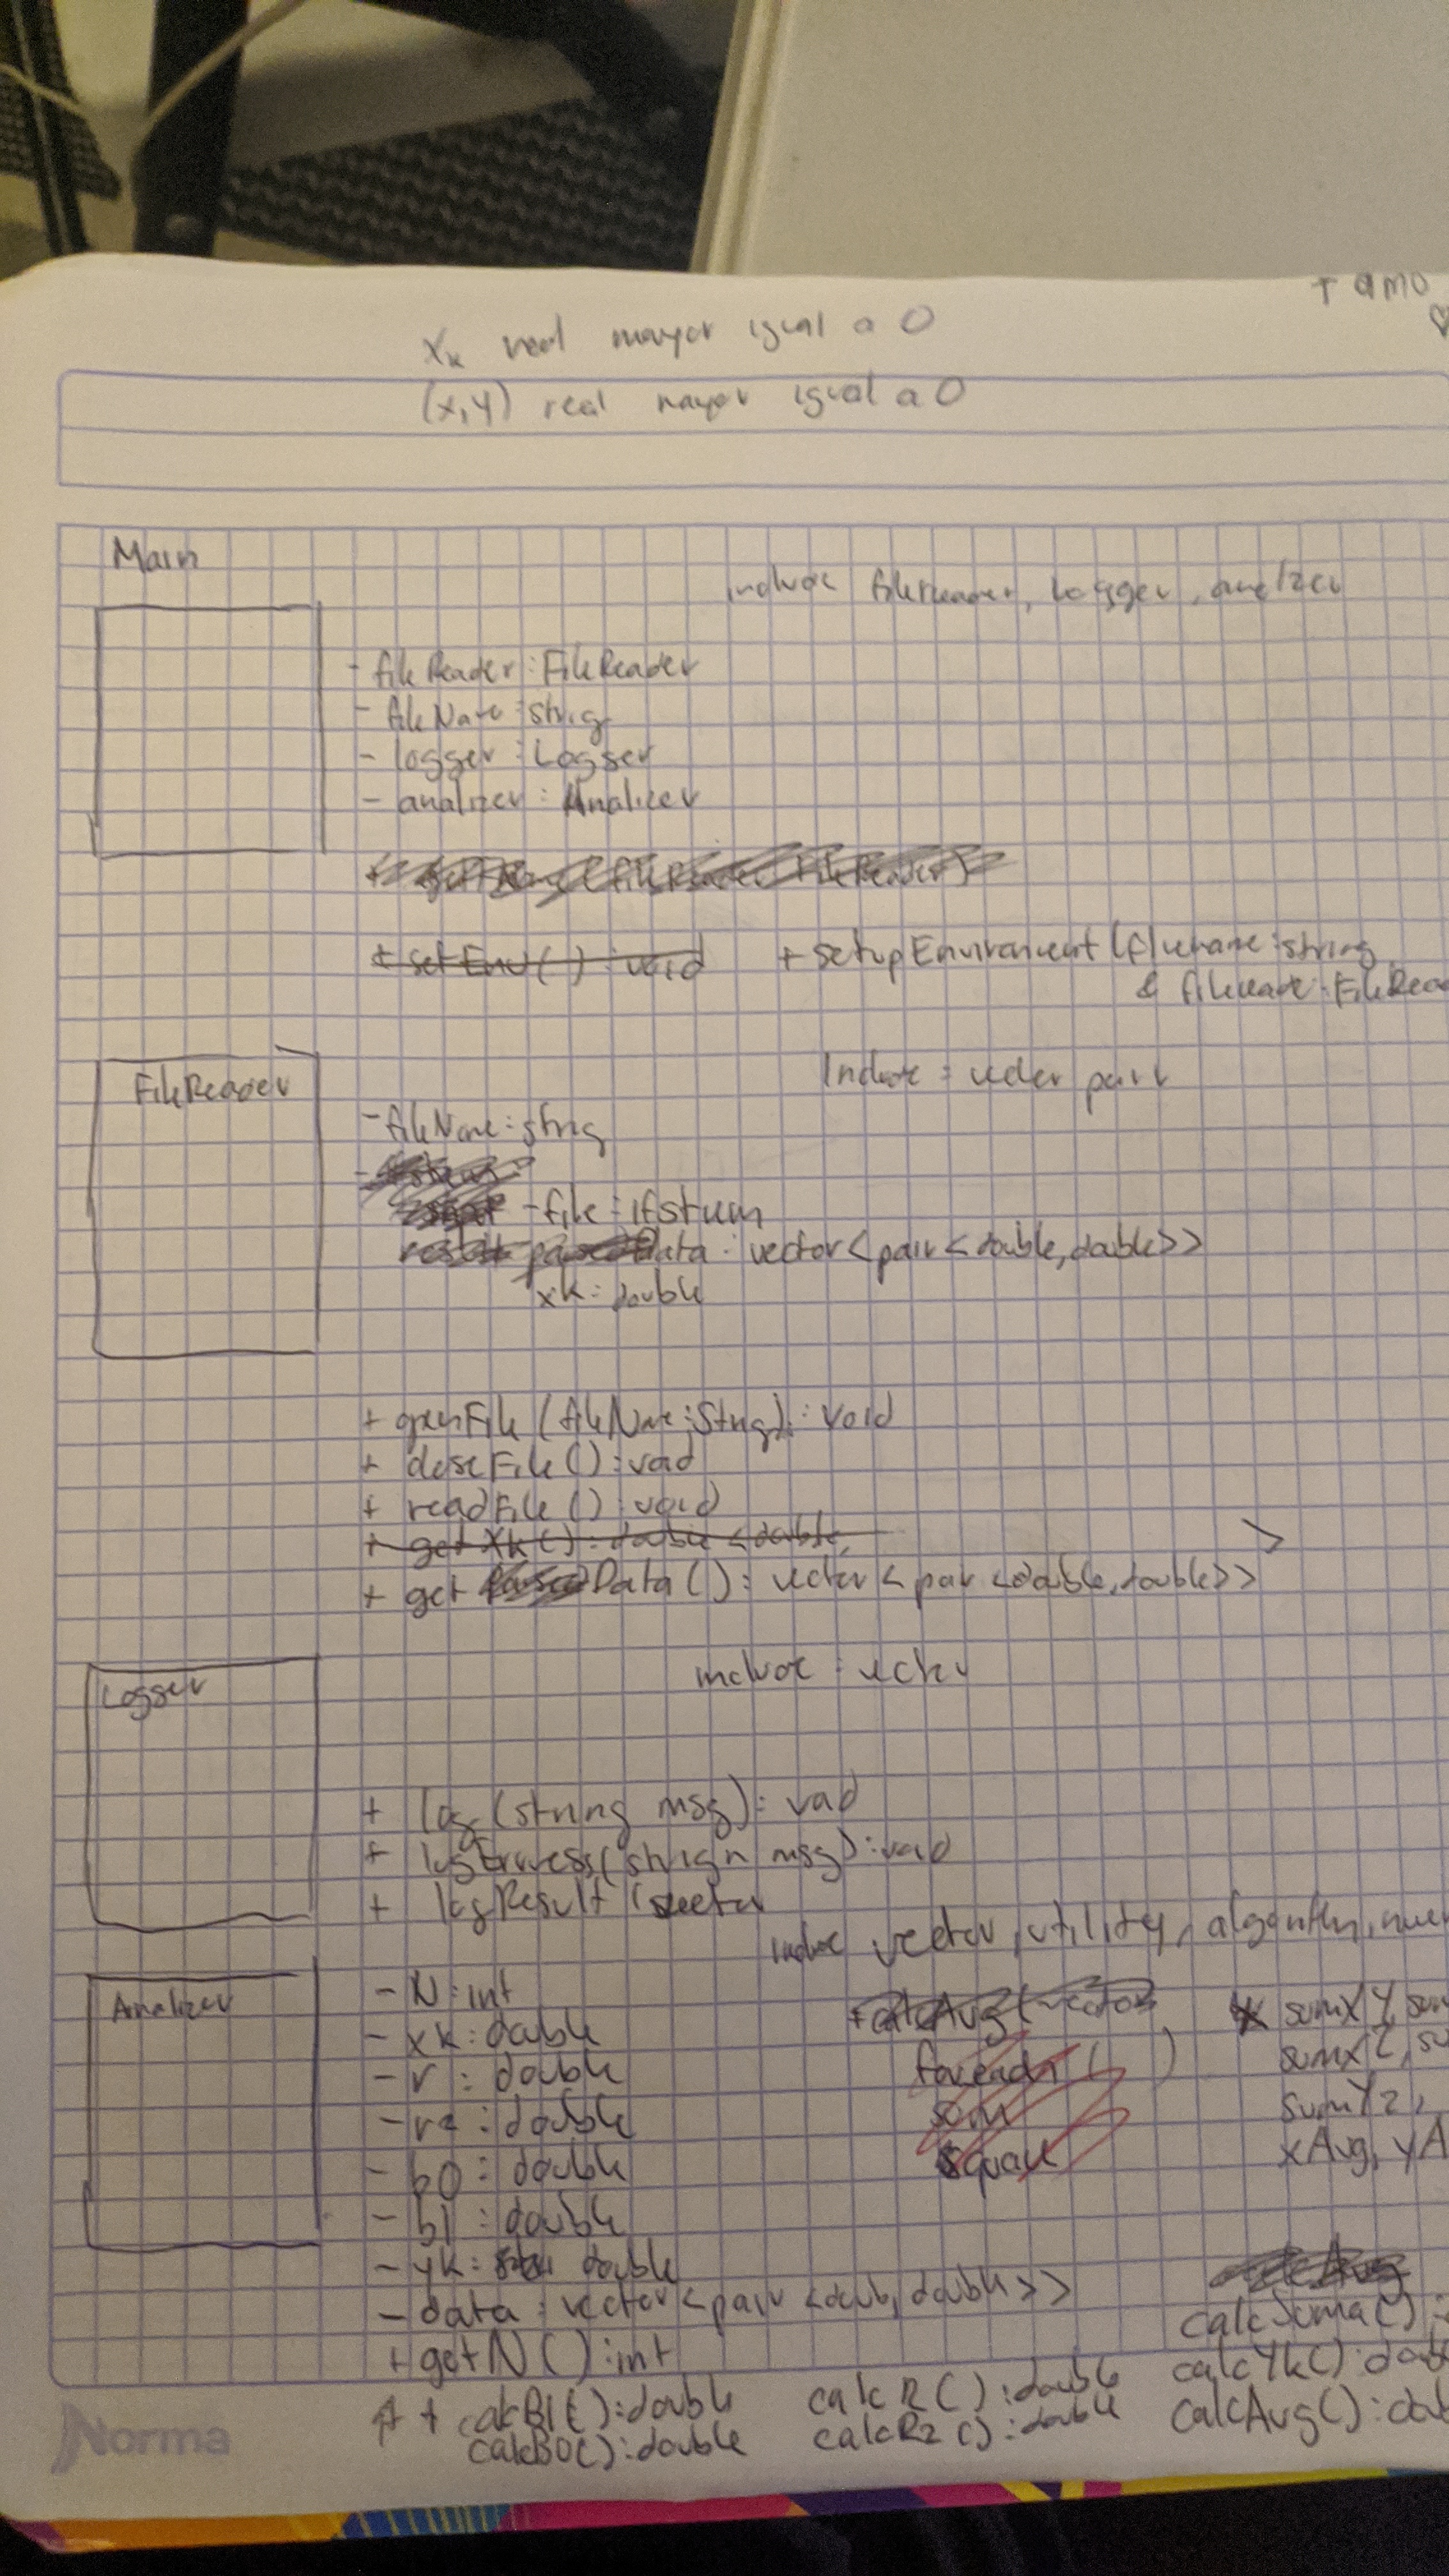 T amo
xk real mayor igual a 0
(x,y) real mayor igual a 0
Main
include fileReader, logger, analizer
- fileReader : FileReader
- fileName : string
- logger : Logger
- analizer : Analizer
+ setEnv( ) : void + setupEnvironment (filename : string
& fileReader : FileRead
FileReader
include : vector pair
- fileName : string
- file : ifstream
result parsedData : vector<pair<double,double>>
xk : double
+ openFile (fileName : String) : void
+ closeFile () : void
+ readFile () : void
+ get Xk () : double <double,
+ get Data () : vector <pair <double,double>>
Logger
include : vector
+ log (string msg) : void
+ (string msg) : void
+ logResult (vector
include vector, utility, algorithm, numer
Analizer
- N : int
- xk : double
- r : double
- r2 : double
- b0 : double
- b1 : double
- yk : double
- data : vector <pair <double, double>>
+ getN () : int
+ calcB1() : double
calcB0() : double
calcR() : double
calcR2 () : double
+ calcAvg (vector
foreach ( )
sum
square
sumXY, sum
sumX2, su
sumY2,
xAvg, yA
calcSuma() :
calcYk() : doub
calcAvg() : dou
Norma